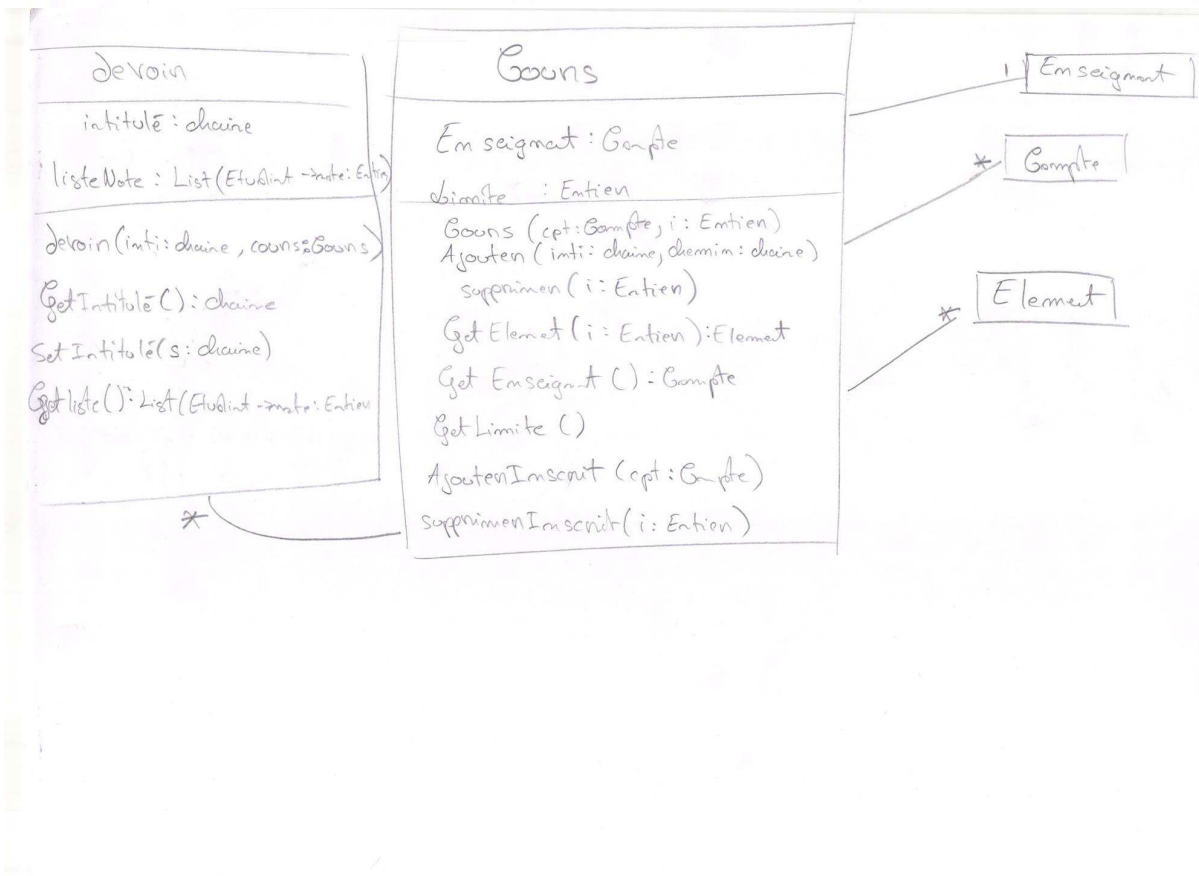 devoir
intitulé : chaine
listeNote : List(Etudiint -> note: Entier)
devoir(inti: chaine, cours: Cours)
GetIntitulé() : chaine
Set Intitulé(s: chaine)
Get liste() : List(Etudiint -> note: Entier
*
Cours
Enseignat : Compte
Limite : Entier
Cours (cpt: Compte, i : Entier)
Ajouter (inti : chaine, chemin : chaine)
supprimer (i : Entier)
Get Elemet (i : Entier) : Element
Get Enseignt () : Compte
Get Limite ()
AjouterInscrit (cpt : Compte)
supprimerInscrit (i : Entier)
1 Enseignant
* Compte
* Element